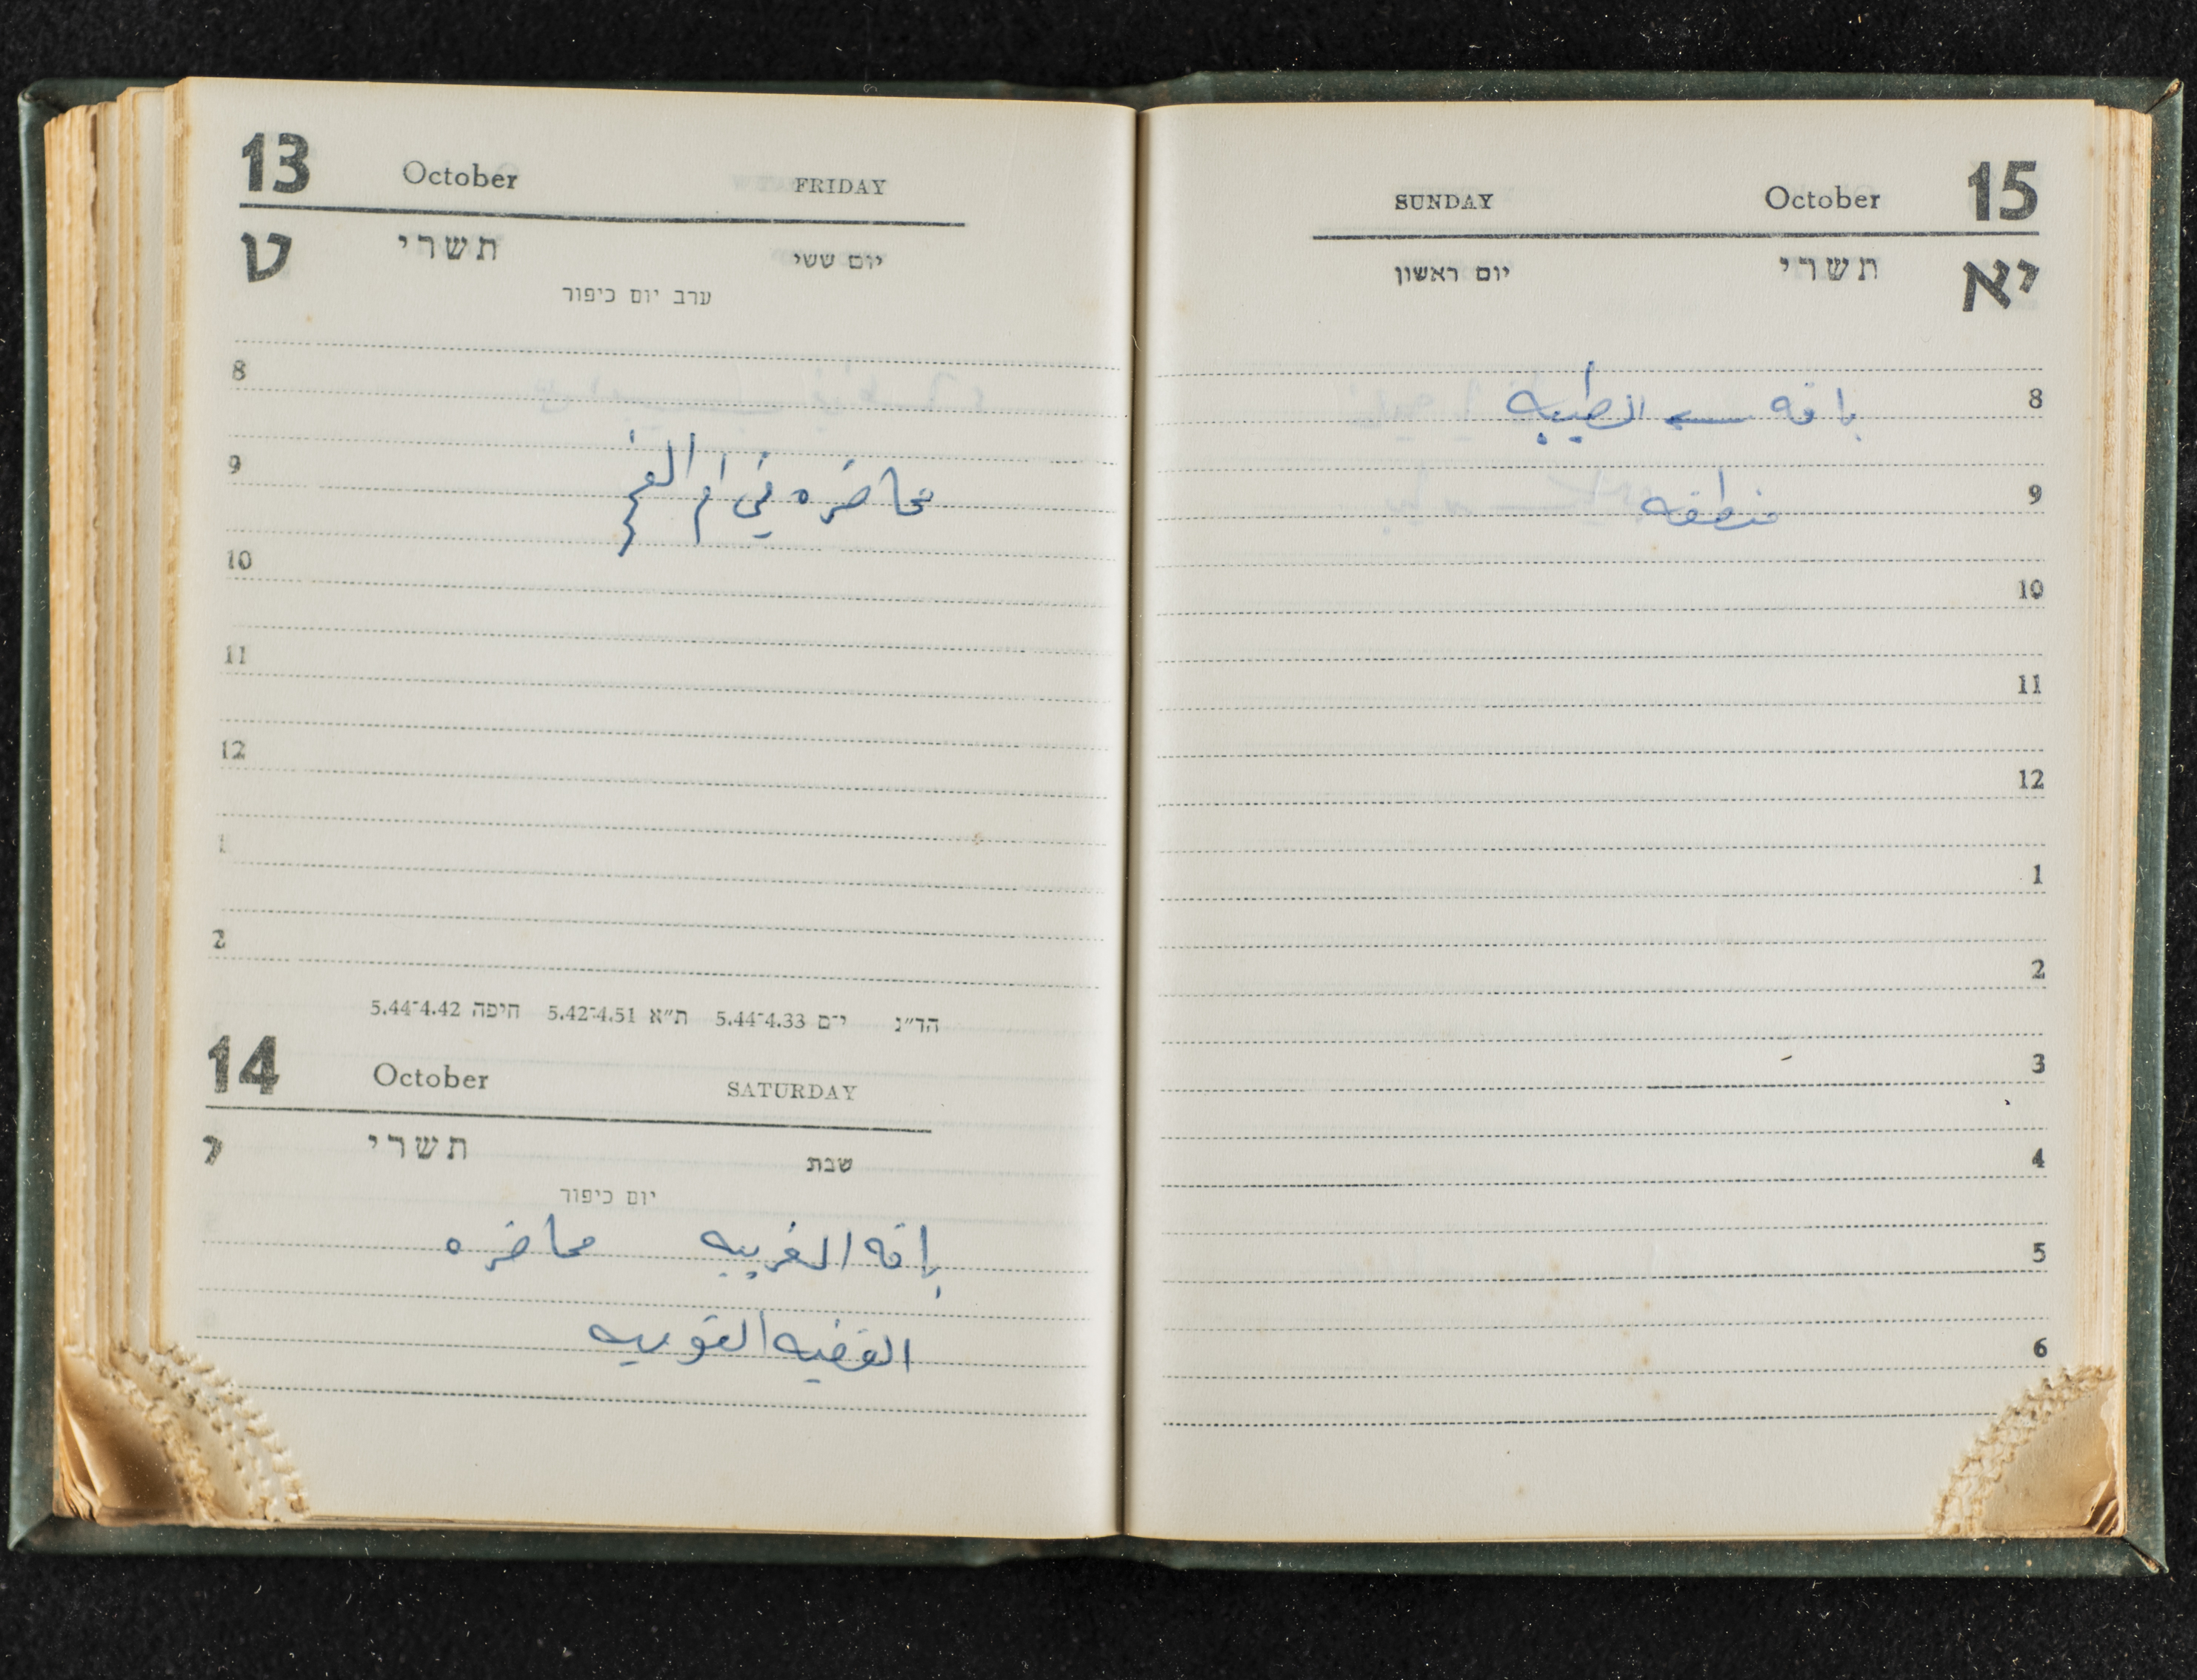 13 October FRIDAY
ט תשרי יום ששי
ערב יום כיפור
8
9 محاضره في ام الفحم
10
11
12
1
2
הד״נ י־ם 4.33־5.44 ת״א 4.51־5.42 חיפה 4.42־5.44
14 October SATURDAY
י תשרי שבת
יום כיפור
باقه الغربيه محاضره
القضيه القوميه
SUNDAY October 15
יא תשרי יום ראשון
8 باقه ← الطيبه
9 منطقه
10
11
12
1
2
3
4
5
6